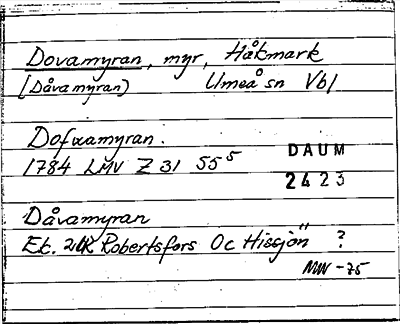 Dovamyran, myr, Håkmark
[Dåvamyran) Umeå sn Vbl
Dofwamyran.
1784 LMV Z 31 55⁵
DAUM
2423
Dåvamyran
Ek. 21K Robertsfors Oc Hissjön" ?
MW -75